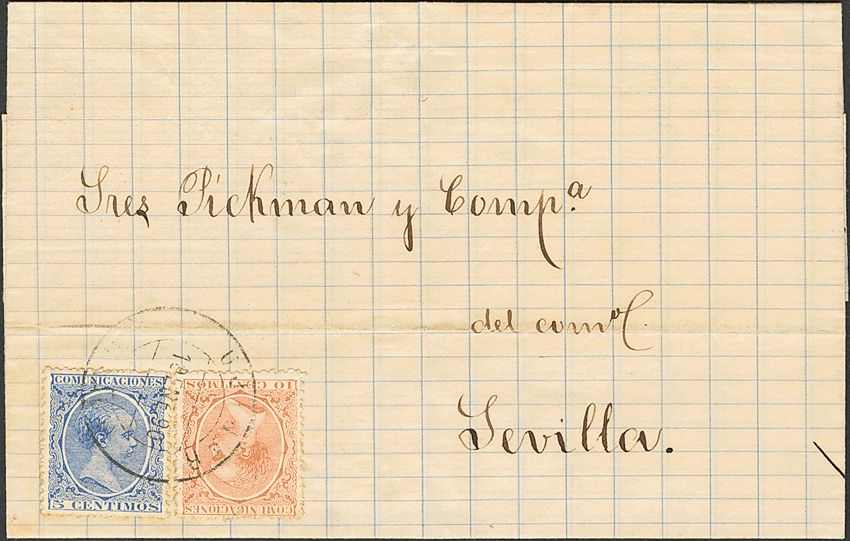 Sres Pickman y Comp.ª
del com.º
Sevilla.
COMUNICACIONES
5 CENTIMOS
10 CENTIMOS
COMUNICACIONES